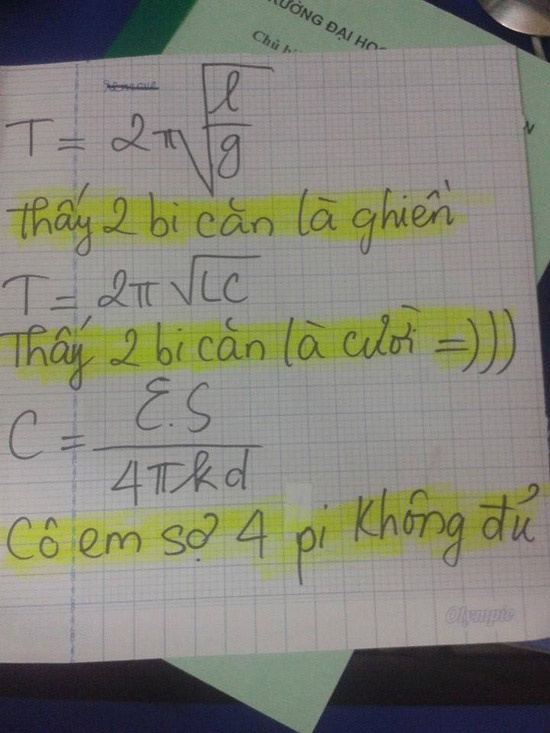 ƯỜNG ĐẠI HỌC
Chủ bi
T = 2π√(l/g)
Thấy 2 bi căn là ghiền
T = 2π√LC
Thấy 2 bi căn là cười =)))
C = ε.S / 4πkd
Cô em sợ 4 pi không đủ
Olympic